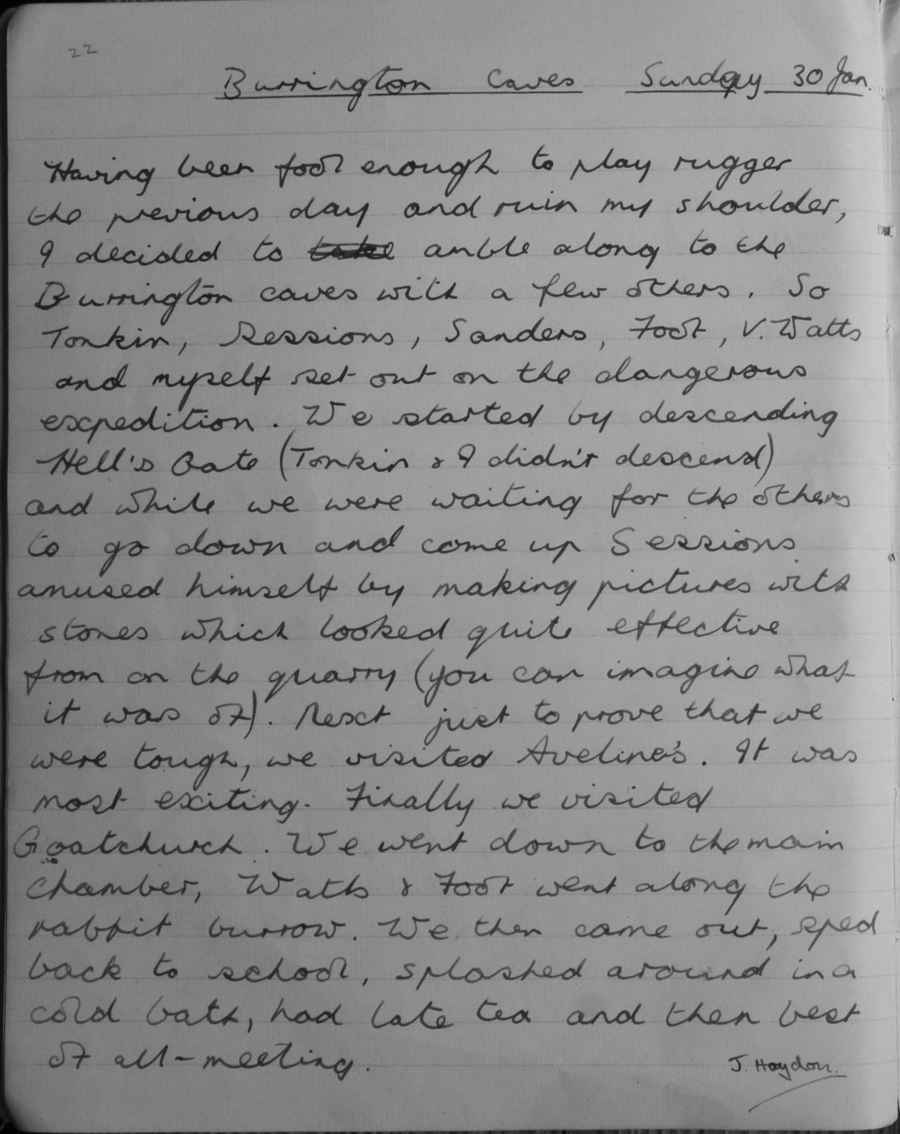 22
Burrington Caves Sunday 30 Jan.
Having been fool enough to play rugger
the previous day and ruin my shoulder,
I decided to take amble along to the
Burrington caves with a few others. So
Tonkin, Sessions, Sanders, Foot, V. Watts
and myself set out on the dangerous
expedition. We started by descending
Hell's Gate (Tonkin & I didn't descend)
and while we were waiting for the others
to go down and come up Sessions
amused himself by making pictures with
stones which looked quite effective
from on the quarry (you can imagine what
it was of). Next just to prove that we
were tough, we visited Aveline's. It was
most exciting. Finally we visited
Goatchurch. We went down to the main
chamber, Watts & Foot went along the
rabbit burrow. We then came out, sped
back to school, splashed around in a
cold bath, had late tea and then best
of all-meeting.
J. Haydon.